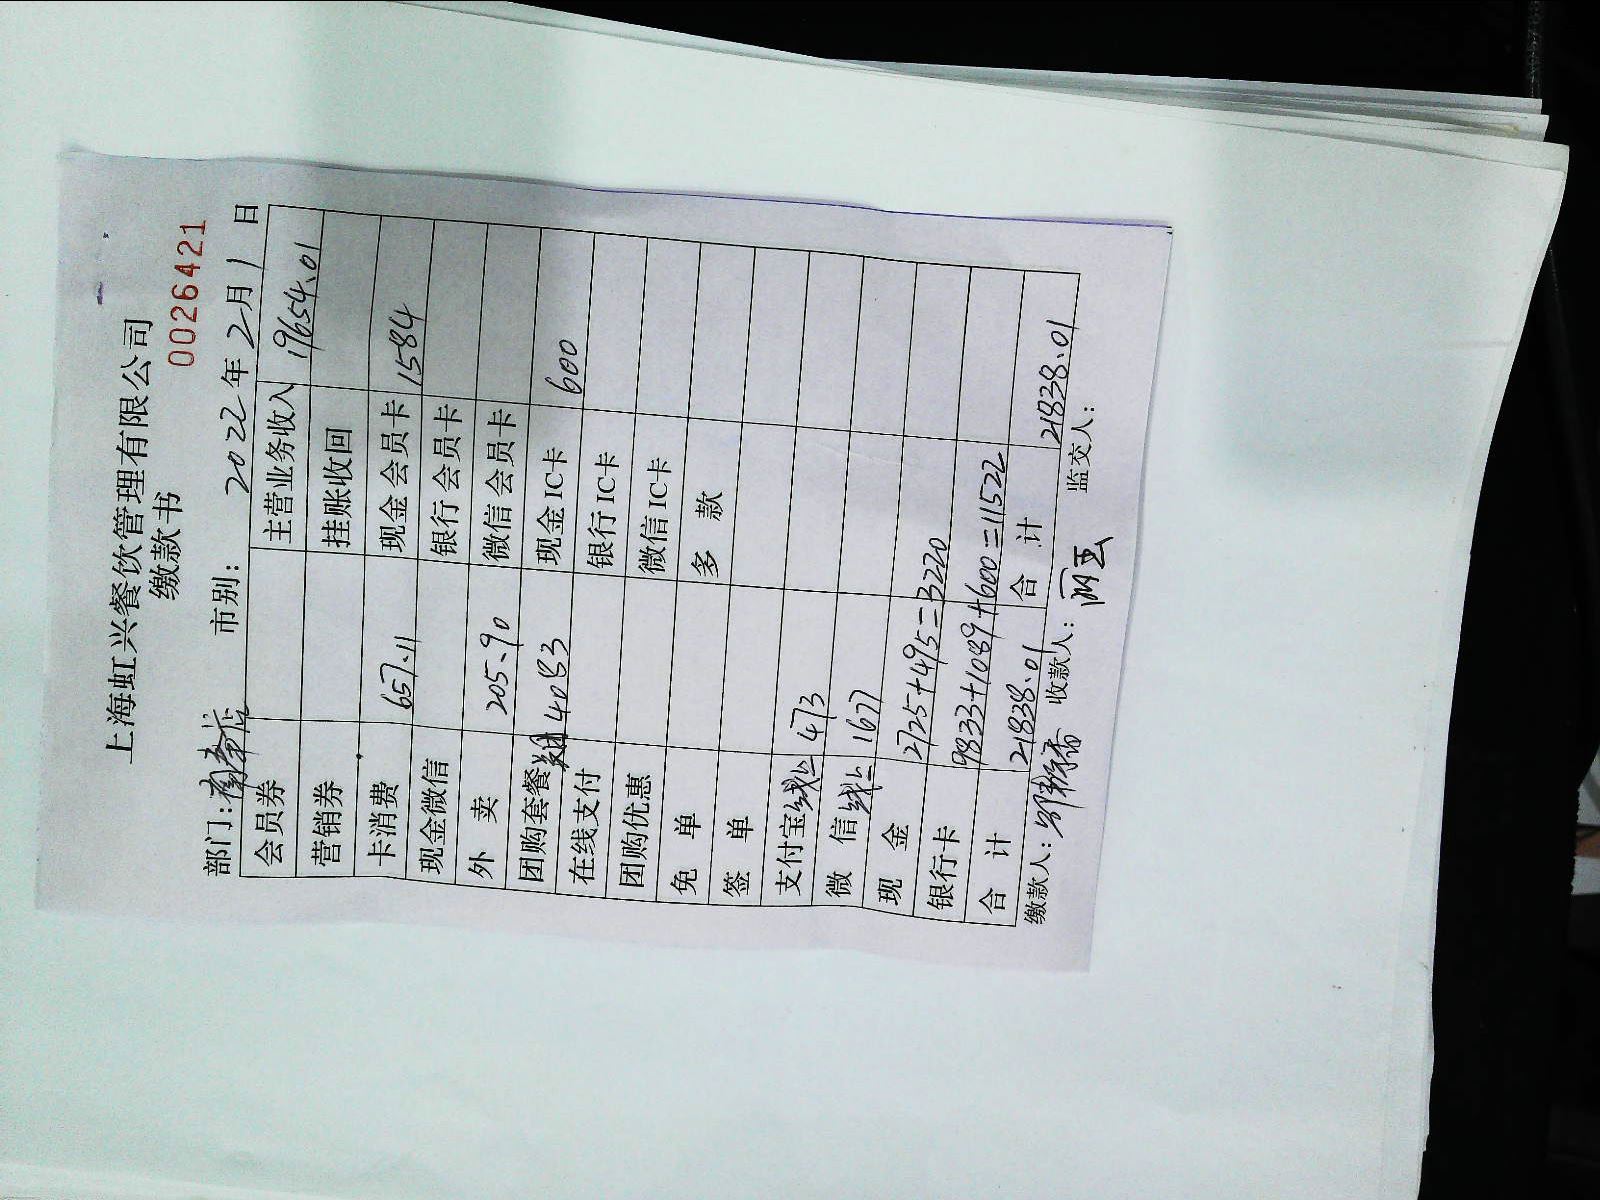 上海虹兴餐饮管理有限公司
缴款书
0026421
部门: 市别: 2022年2月1日
会员券 主营业务收入 19654.01
营销券 挂账收回
卡消费 657.11 现金会员卡 1584
现金微信 银行会员卡
外卖 205.90 微信会员卡
团购套餐 美团 4083 现金IC卡 600
在线支付 银行IC卡
团购优惠 微信IC卡
免单 多款
签单
支付宝 线上 473
微信 线上 1677
现金 2725+495=3220
银行卡 9833+1089+600=11522
合计 21838.01 合计 21838.01
缴款人: 收款人: 监交人: